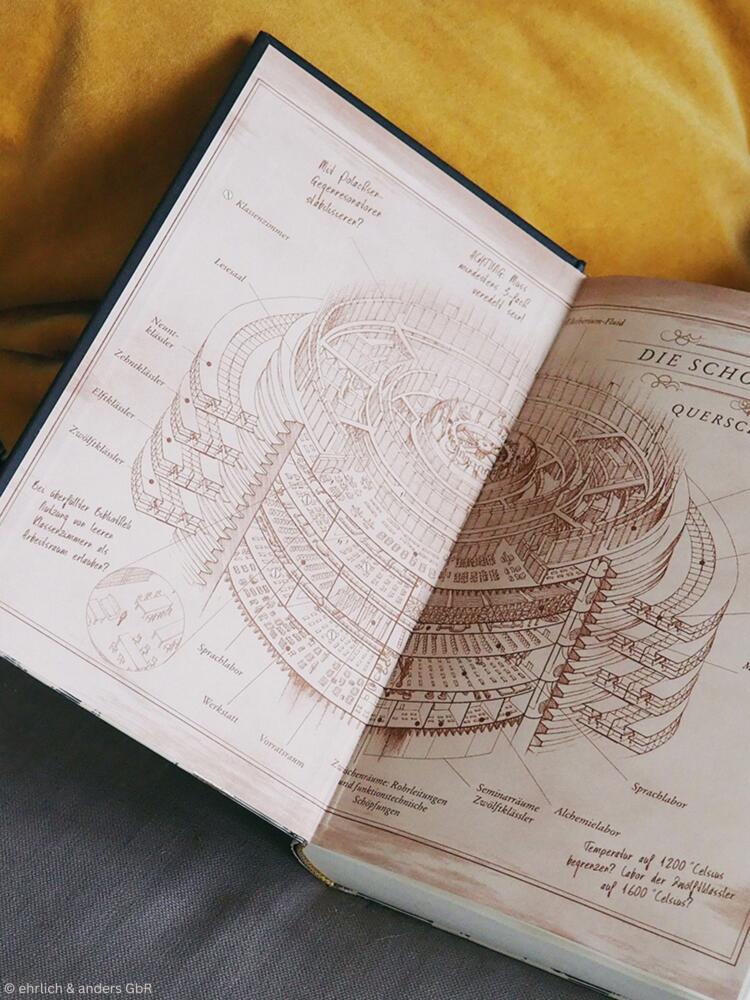 Mit Polachsen-
Gegenresonatoren
stabilisieren?
Klassenzimmer
ACHTUNG: Muss
mindestens 3-fach
veredelt sein!
Lesesaal
Neunt-
klässler
Zehntklässler
Elftklässler
Zwölftklässler
Bei überfüllter Bibliothek
Nutzung von leeren
Klassenzimmern als
Arbeitsraum erlauben?
Sprachlabor
Werkstatt
Vorratsraum
DIE SCHÖ
QUERSCH
Zwischenräume: Rohrleitungen
und funktionstechnische
Schöpfungen
Seminarräume
Zwölftklässler
Alchemielabor
Sprachlabor
Temperatur auf 1200 °Celsius
begrenzen? Labor der Zwölftklässler
auf 1600 °Celsius?
© ehrlich & anders GbR